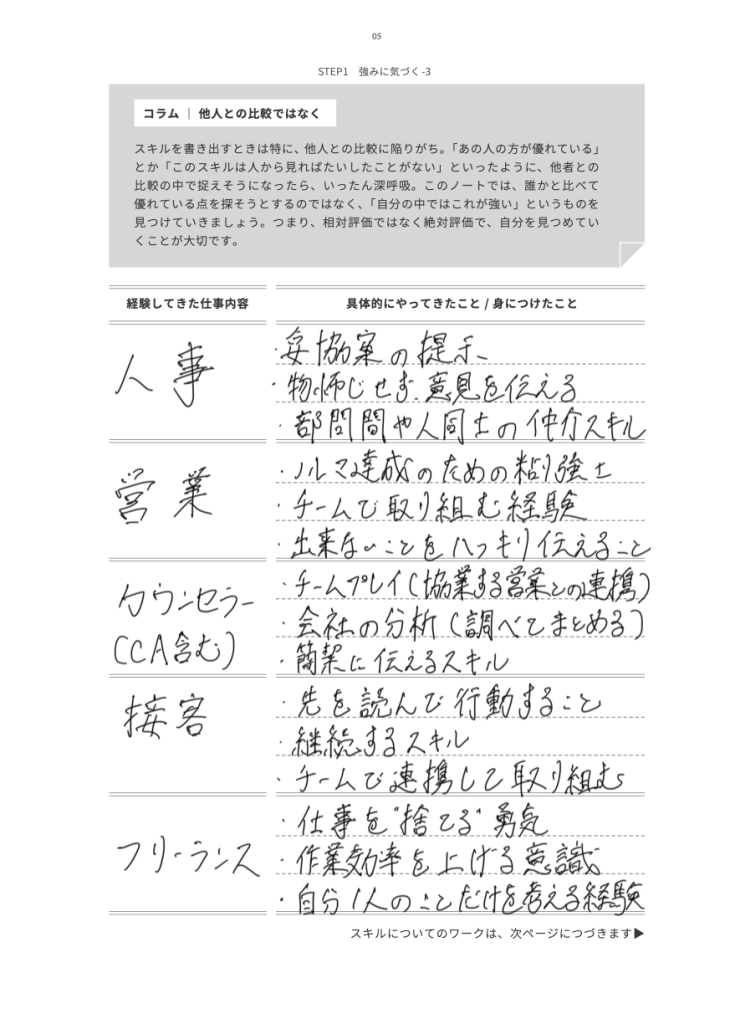 05
STEP1 強みに気づく-3
コラム｜他人との比較ではなく
スキルを書き出すときは特に、他人との比較に陥りがち。「あの人の方が優れている」
とか「このスキルは人から見ればたいしたことがない」といったように、他者との
比較の中で捉えそうになったら、いったん深呼吸。このノートでは、誰かと比べて
優れている点を探そうとするのではなく、「自分の中ではこれが強い」というものを
見つけていきましょう。つまり、相対評価ではなく絶対評価で、自分を見つめてい
くことが大切です。
経験してきた仕事内容
具体的にやってきたこと / 身につけたこと
人事
・妥協案の提示
・物怖じせず意見を伝える
・部門間や人同士の仲介スキル
営業
・ノルマ達成のための粘り強さ
・チームで取り組む経験
・出来ないことをハッキリ伝えること
カウンセラー
(CA含む)
・チームプレイ(協業する営業との連携)
・会社の分析(調べてまとめる)
・簡潔に伝えるスキル
接客
・先を読んで行動すること
・継続するスキル
・チームで連携して取り組む
フリーランス
・仕事を"捨てる"勇気
・作業効率を上げる意識
・自分1人のことだけを考える経験
スキルについてのワークは、次ページにつづきます▶